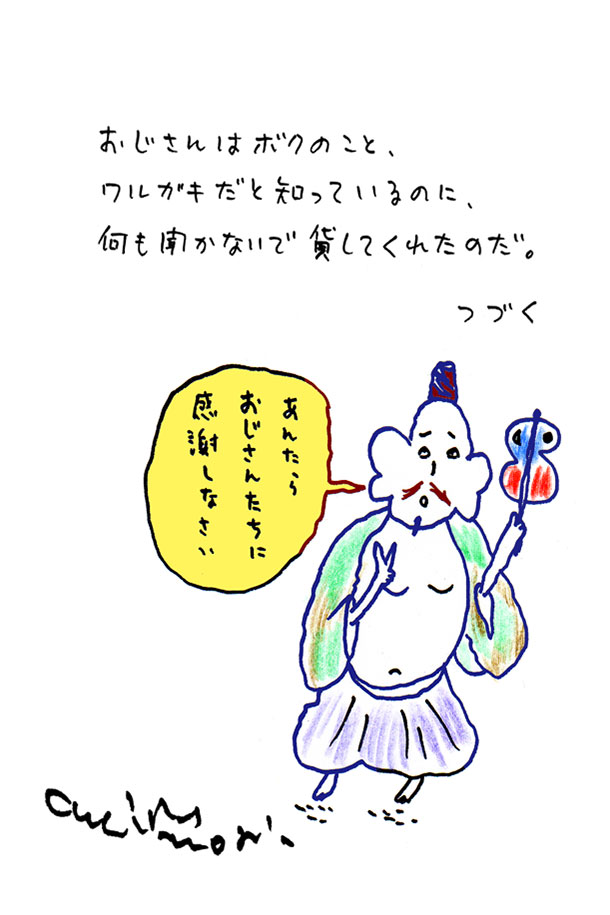 おじさんはボクのこと、
ワルガキだと知っているのに、
何も聞かないで貸してくれたのだ。
つづく
あんたら
おじさんたちに
感謝しなさい